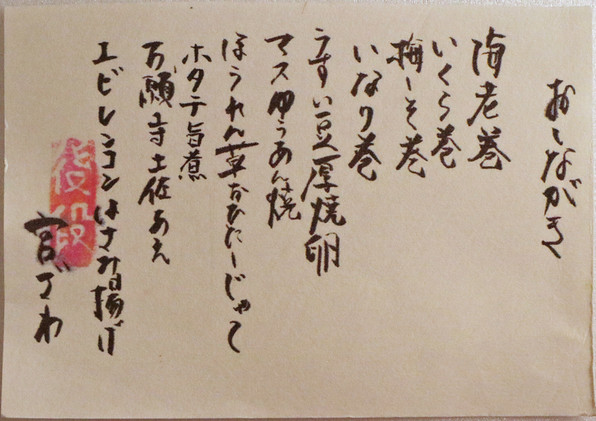 おしながき
海老巻
いくら巻
梅しそ巻
いなり巻
うすい豆厚焼卵
マスゆうあん焼
ほうれん草おひたしじゃこ
ホタテ旨煮
万願寺土佐あえ
エビレンコンはさみ揚げ
後段
宮ざわ